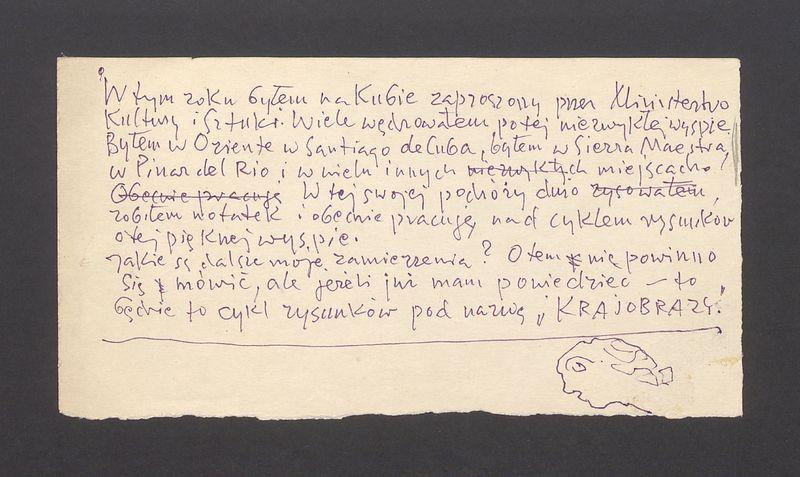 W tym roku byłem na Kubie zaproszony przez Ministerstwo
Kultury i Sztuki. Wiele wędrowałem po tej niezwykłej wyspie.
Byłem w Oriente w Santiago de Cuba, byłem w Sierra Maestra,
w Pinar del Rio, i w wielu innych niezwykłych miejscach.
Obecnie pracuję W tej swojej podróży dużo rysowałem,
robiłem notatek i obecnie pracuję nad cyklem rysunków
o tej pięknej wyspie.
Jakie są dalsze moje zamierzenia? O tem nie powinno
się mówić, ale jeżeli już mam powiedzieć – to
będzie to cykl rysunków pod nazwą „KRAJOBRAZY".